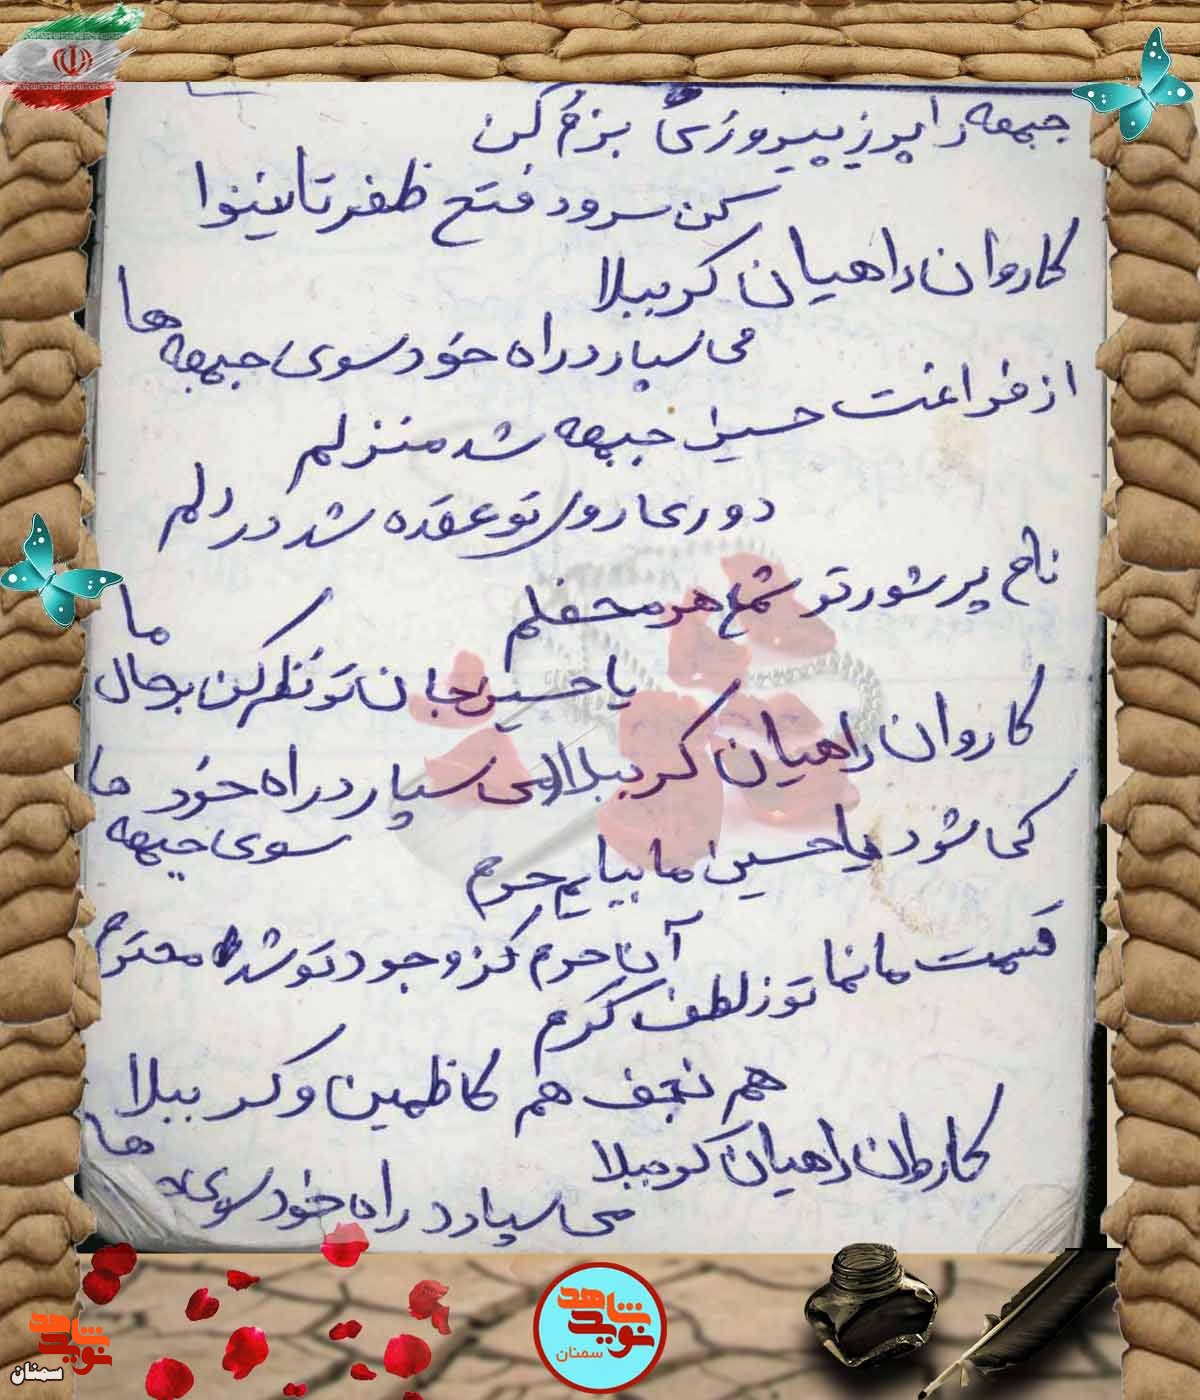 جبهه را پر ز پیروزی بزم کن
کن سرود فتح ظفر تا نینوا
کاروان راهیان کربلا
می سپارد راه خود سوی جبهه ها
از فراغت حسین جبهه شد منزلم
دوری روی تو عقده شد در دلم
نام پر شور تو شمع هر محفلم
یا حسین جان تو نظر کن بر حال ما
کاروان راهیان کربلا می سپارد راه خود
سوی جبهه ها
کی شود یا حسین ما بیایم حرم
آن حرم کز وجود تو شد محترم
قسمت ما نما تو ز لطف کرم
هم نجف هم کاظمین و کربلا
کاروان راهیان کربلا
می سپارد راه خود سوی ها
نوید شاهد
سمنان
نوید شاهد
سمنان